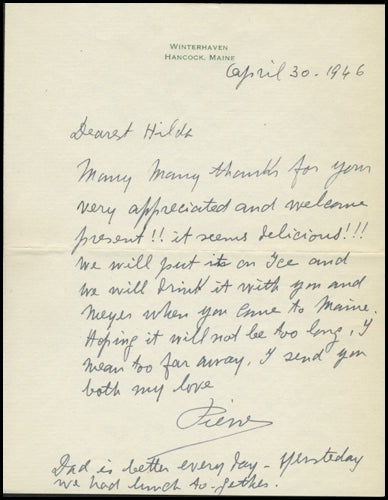 WINTERHAVEN
HANCOCK, MAINE
April 30 - 1946
Dearest Hilda
Many Many thanks for your
very appreciated and welcome
present!! it seems delicious!!!
we will put it on Ice and
we will drink it with you and
Meyes when you come to Maine.
Hoping it will not be too long, I
mean too far away, I send you
both my love
Pierre
Dad is better every day - yesterday
we had lunch to-gether.